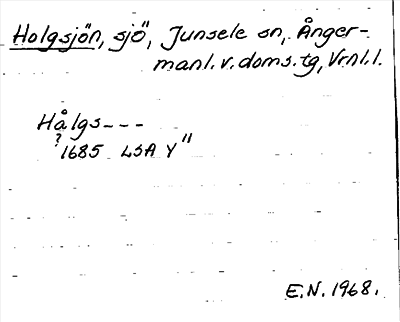 Holgsjön, sjö, Junsele sn, Ånger-
manl. v. doms. tg, Vrnl. l.
Hålgs---
? 1685 LSA Y"
E.N. 1968.